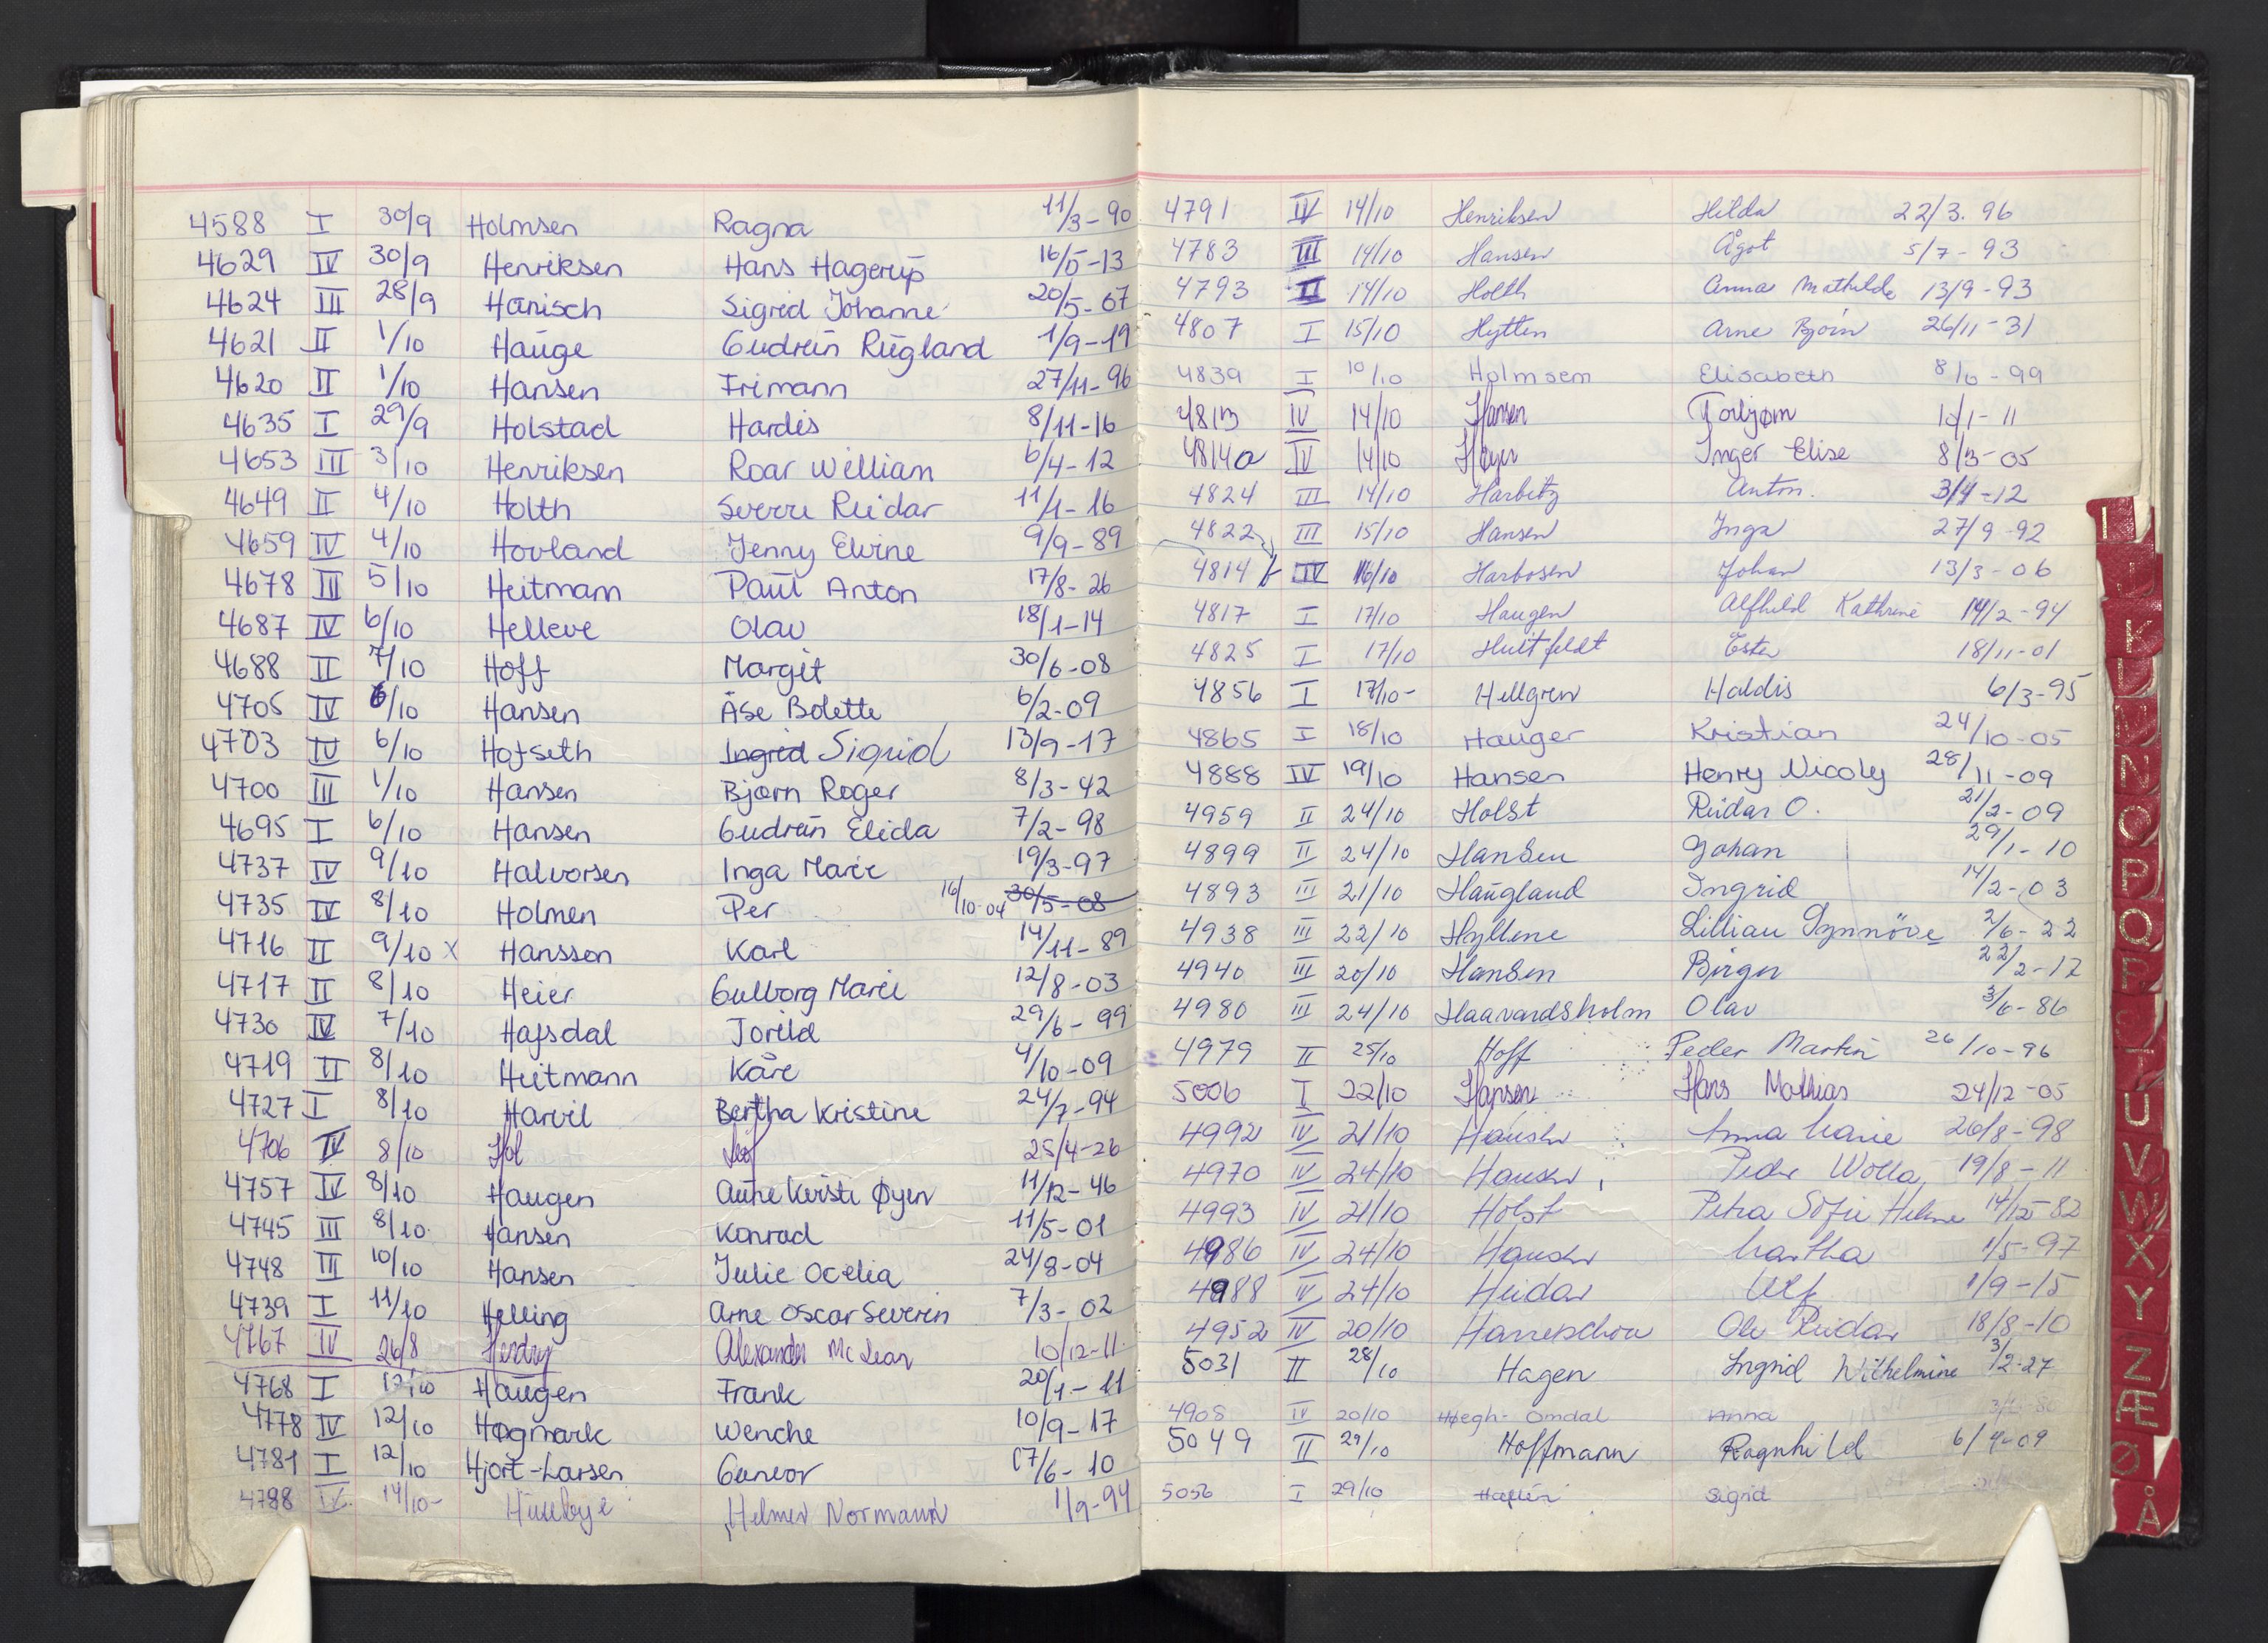 4588 I 30/9 Holmsen Ragna 11/3-90
4629 IV 30/9 Henriksen Hans Hagerup 16/5-13
4624 III 28/9 Hanisch Sigrid Johanne 20/5-07
4621 II 1/10 Hauge Gudrun Rugland 1/9-19
4620 II 1/10 Hansen Frimann 27/11-96
4635 I 29/9 Holstad Hardis 8/11-16
4653 III 3/10 Henriksen Roar William 6/4-12
4649 II 4/10 Holth Sverre Reidar 11/1-16
4659 IV 4/10 Hovland Jenny Elvine 9/9-89
4678 III 5/10 Heitmann Paul Anton 17/8-26
4687 IV 6/10 Helleve Olav 18/1-14
4688 II 7/10 Hoff Margit 30/6-08
4705 IV 6/10 Hansen Åse Bolette 6/2-09
4703 IV 6/10 Hofseth Ingrid Sigrid 13/9-17
4700 III 1/10 Hansen Bjørn Roger 8/3-42
4695 I 6/10 Hansen Gudrun Elida 7/2-98
4737 IV 9/10 Halvorsen Inga Marie 19/3-97
4735 IV 8/10 Holmen Per 16/10-04 30/5-08
4716 II 9/10 x Hansson Karl 14/11-89
4717 II 8/10 Heier Gulborg Marie 12/8-03
4730 IV 7/10 Hafsdal Torild 29/6-99
4719 II 8/10 Heitmann Kåre 4/10-09
4727 I 8/10 Harvil Bertha Kristine 24/7-94
4706 IV 8/10 Hol 25/4-26
4757 IV 8/10 Haugen Anne Kirsti Øyen 11/12-46
4745 III 8/10 Hansen Konrad 11/5-01
4748 III 10/10 Hansen Julie Ocelia 24/8-04
4739 I 11/10 Helling Arne Oscar Severin 7/3-02
4767 IV 26/8 Hendry Alexander McLean 10/12-11
4768 I 12/10 Haugen Frank 20/1-11
4778 IV 12/10 Høgmark Wenche 10/9-17
4781 I 12/10 Hjort-Larsen Gunvor 17/6-10
4788 IV 14/10- Huseby Helmer Normann 1/9-94
4791 IV 14/10 Henriksen Hilda 22/3.96
4783 III 14/10 Hansen Ågot 5/7-93
4793 II 14/10 Holth Anna Mathilde 13/9-93
4807 I 15/10 Hytten Arne Bjørn 26/11-31
4839 I 10/10 Holmsen Elisabeth 8/6-99
4813 IV 14/10 Hansen Torbjørn 10/1-11
4814a IV 14/10 Høyer Inger Elise 8/3-05
4824 III 14/10 Harbitz Anton. 3/4-12
4822 III 15/10 Hansen Inga 27/9-92
4814b IV 16/10 Harbosen Johan 13/3-06
4817 I 17/10 Haugen Alfhild Kathrine 14/2-94
4825 I 17/10 Huitfeldt Ester 18/11-01
4856 I 17/10- Hellgren Haldis 6/3-95
4865 I 18/10 Hauger Kristian 24/10-05
4888 IV 19/10 Hansen Henry Nicoly 28/11-09
4959 II 24/10 Holst Reidar O. 21/2-09
4899 II 24/10 Hansen Johan 29/1-10
4893 III 21/10 Haugland Ingrid 14/2-03
4938 III 22/10 Hyllene Lillian Synnöve 2/6-22
4940 III 20/10 Hansen Birger 22/2-17
4980 III 24/10 Haavardsholm Olav 3/6-86
4979 II 25/10 Hoff Peder Martin 26/10-96
5006 I 22/10 Hansen Hans Mathias 24/12-05
4992 IV 21/10 Hansen Anna Marie 26/8-98
4970 IV 24/10 Hansen Peder Wolla 19/8-11
4993 IV 21/10 Holst Petra Sofie Helene 14/12-82
4986 IV 24/10 Hansen Martha 1/5-97
4988 IV 24/10 Heidar Ulf 1/9-15
4952 IV 20/10 Hanneschou Ole Reidar 18/8-10
5031 II 28/10 Hagen Ingrid Wilhelmine 3/2-27
4908 IV 20/10 Høegh-Omdal Anna
5049 II 29/10 Hoffmann Ragnhild 6/4-09
5056 I 29/10 Sigrid
I
J
K
L
M
N
O
P
Q
R
S
T
U
V
W
X
Y
Z
Æ
Ø
Å